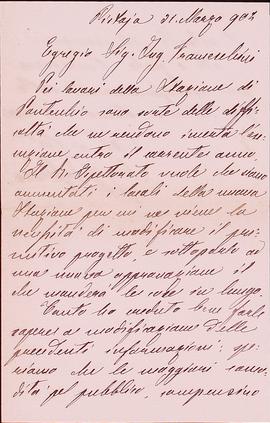 Pistoja 21. Marzo 902
Egregio Sig. Ing. Franceschini
Pei lavori della Stazione di
sono sorte delle diffi-
coltà che ne rendono incerta l'ese-
cuzione entro il corrente anno.
Il R. Ispettorato vuole che siano
aumentati i locali della nuova
Stazione per cui ne viene la
necessità di modificare il pri-
mitivo progetto, e sottoporlo ad
una nuova approvazione il
che manderà le cose in lungo.
Tanto ho creduto bene farle
sapere a modificazione delle
precedenti informazioni: spe-
riamo che le maggiori como-
dità pel pubblico, compensino